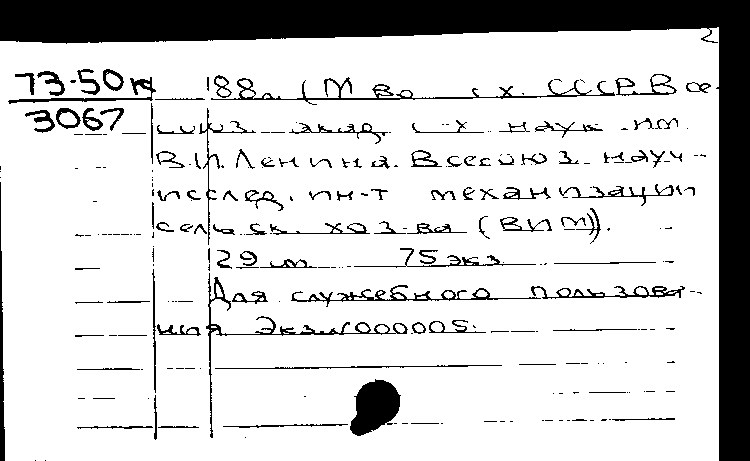 2
73-50 к 188л. (М-во с.-х. СССР. Все-
3067 союз. акад. с-х наук им.
В.И.Ленина. Всесоюз. науч-
исслед. ин-т механизации
сельск. хоз-ва (ВИМ)).
29 см 75 экз
Для служебного пользова-
ния Экз.№000005.